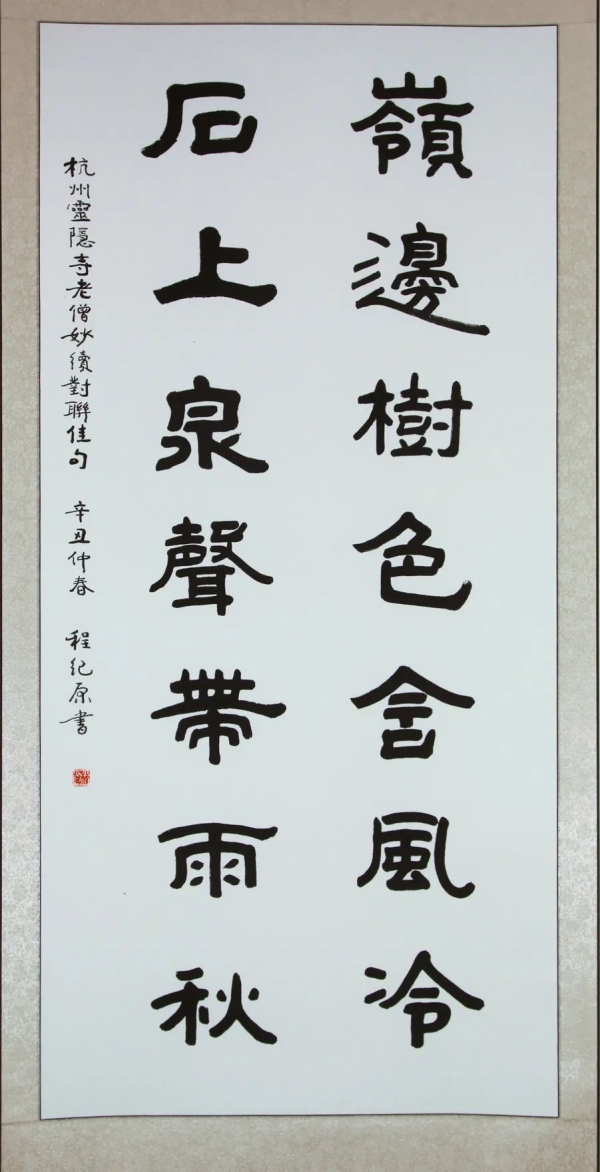 嶺邊樹色含風冷
石上泉聲帶雨秋
杭州靈隱寺老僧妙續對聯佳句 辛丑仲春 程纪原書